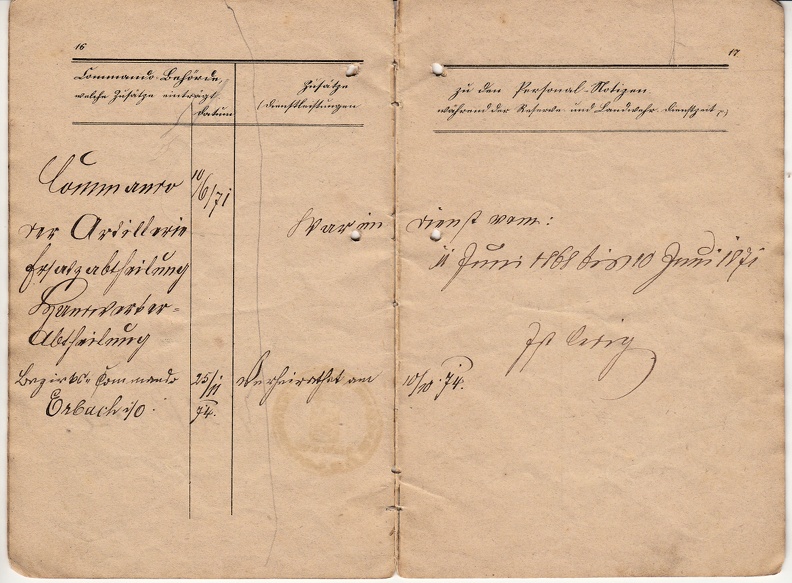 16
Commando-Behörde,
welche Zusätze einträgt.
Datum
Zusätze
(Dienstleistungen
Commando
10/6/71
der Artillerie
War im
Ersatzabtheilung
Handwerker-
Abtheilung
Bezirks-Commando
25/11
74.
Verheirathet am
Erbach i/O.
17
zu den Personal-Notizen
während der Reserve- und Landwehr-Dienstzeit
Dienst vom:
11 Juni 1868 bis 10 Juni 1871
Ist
10/10 74.